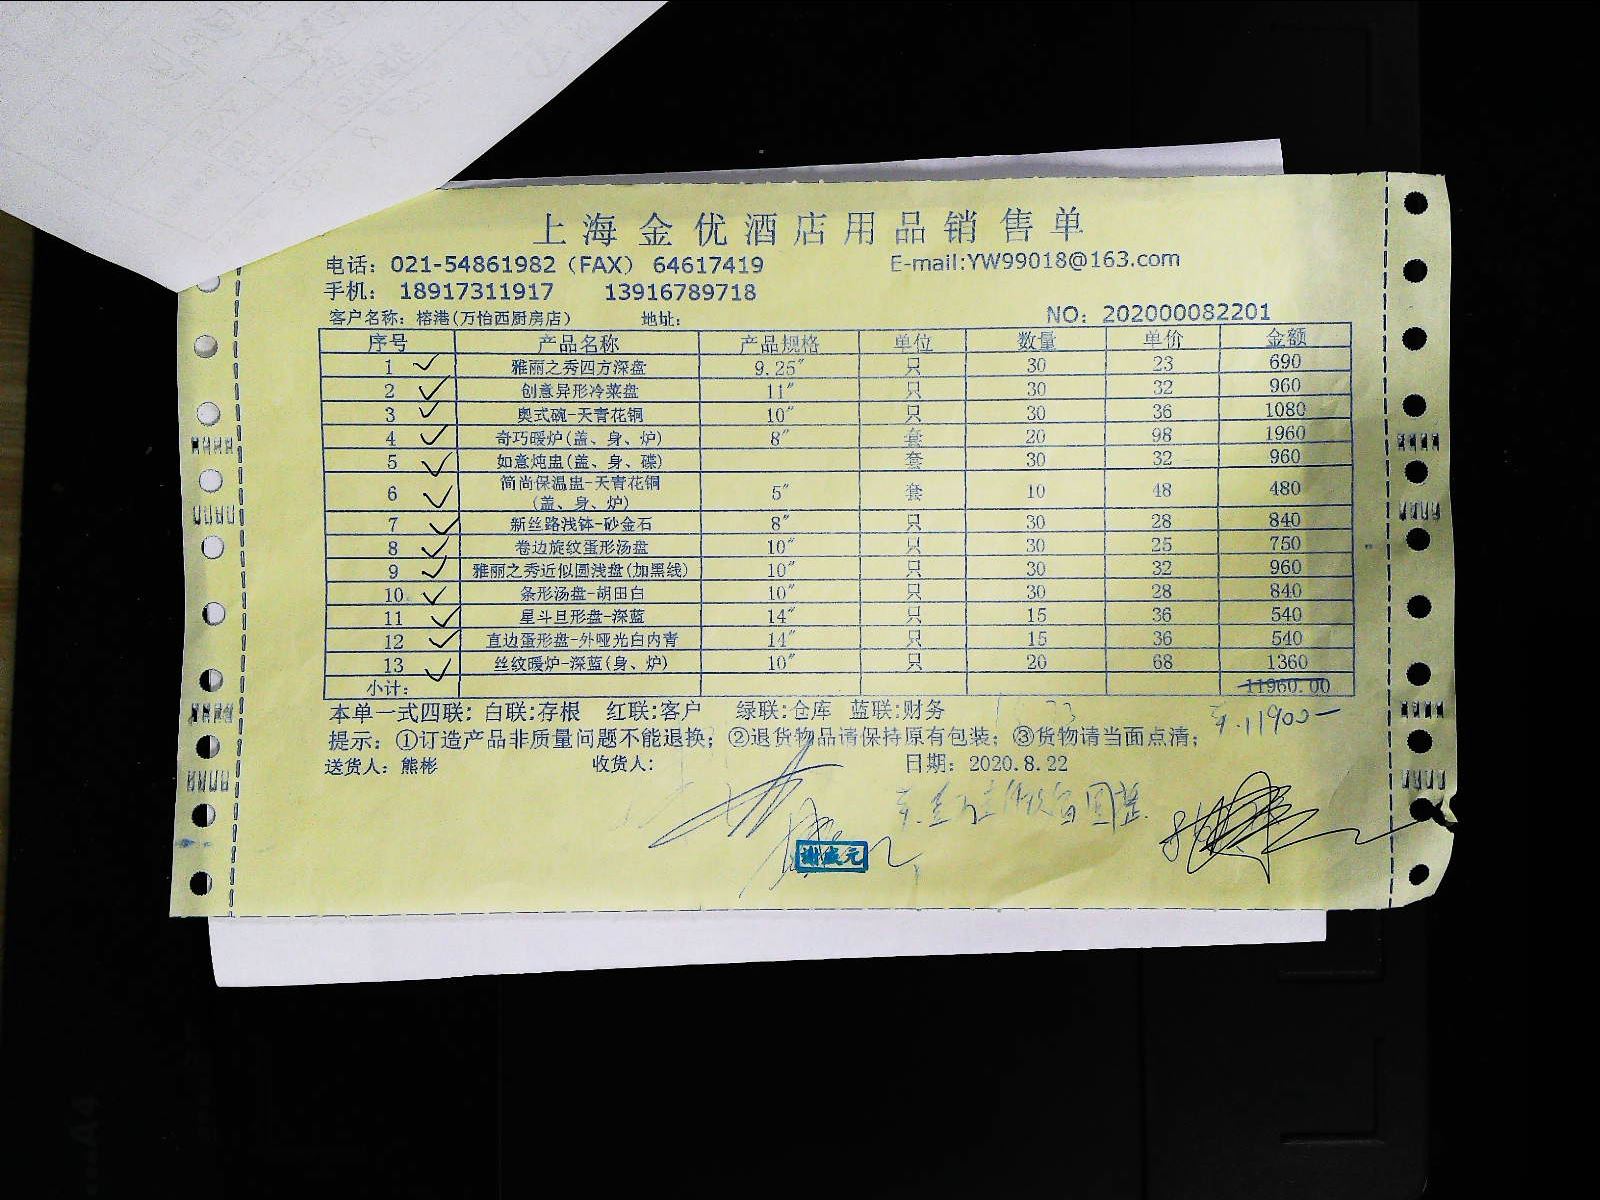 上海金优酒店用品销售单
电话：021-54861982（FAX） 64617419 E-mail:YW99018@163.com
手机： 18917311917 13916789718
客户名称：榕港(万怡西厨房店) 地址： NO：202000082201
序号 产品名称 产品规格 单位 数量 单价 金额
1 雅丽之秀四方深盘 9.25" 只 30 23 690
2 创意异形冷菜盘 11" 只 30 32 960
3 奥式碗-天青花铜 10" 只 30 36 1080
4 奇巧暖炉(盖、身、炉) 8" 套 20 98 1960
5 如意炖盅(盖、身、碟) 套 30 32 960
6 简尚保温盅-天青花铜 5" 套 10 48 480
(盖、身、炉)
7 新丝路浅钵-砂金石 8" 只 30 28 840
8 卷边旋纹蛋形汤盘 10" 只 30 25 750
9 雅丽之秀近似圆浅盘(加黑线) 10" 只 30 32 960
10 条形汤盘-胡田白 10" 只 30 28 840
11 星斗旦形盘-深蓝 14" 只 15 36 540
12 直边蛋形盘-外哑光白内青 14" 只 15 36 540
13 丝纹暖炉-深蓝(身、炉) 10" 只 20 68 1360
小计： 11960.00
本单一式四联：白联:存根 红联:客户 绿联:仓库 蓝联:财务
11900-
提示：①订造产品非质量问题不能退换；②退货物品请保持原有包装；③货物请当面点清；
送货人：熊彬 收货人： 日期：2020.8.22